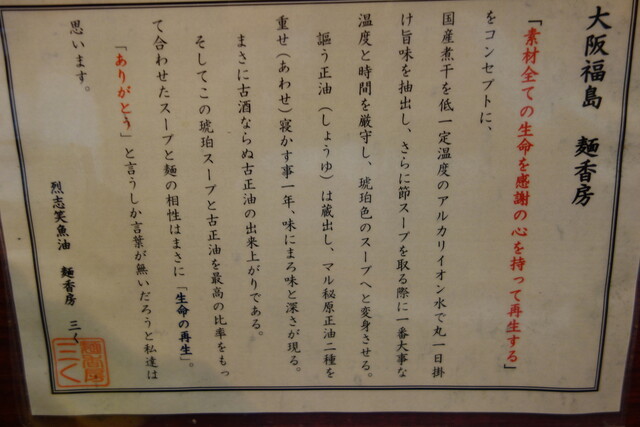 大阪福島　麺香房
「素材全ての生命を感謝の心を持って再生する」
をコンセプトに、
国産煮干を低一定温度のアルカリイオン水で丸一日掛
け旨味を抽出し、さらに節スープを取る際に一番大事な
温度と時間を厳守し、琥珀色のスープへと変身させる。
謳う正油（しょうゆ）は蔵出し、マル秘原正油二種を
重せ（あわせ）寝かす事一年、味にまろ味と深さが現る。
まさに古酒ならぬ古正油の出来上がりである。
そしてこの琥珀スープと古正油を最高の比率をもっ
て合わせたスープと麺の相性はまさに「生命の再生」。
「ありがとう」と言うしか言葉が無いだろうと私達は
思います。
烈志笑魚油　麺香房　三く
麺香房
三く